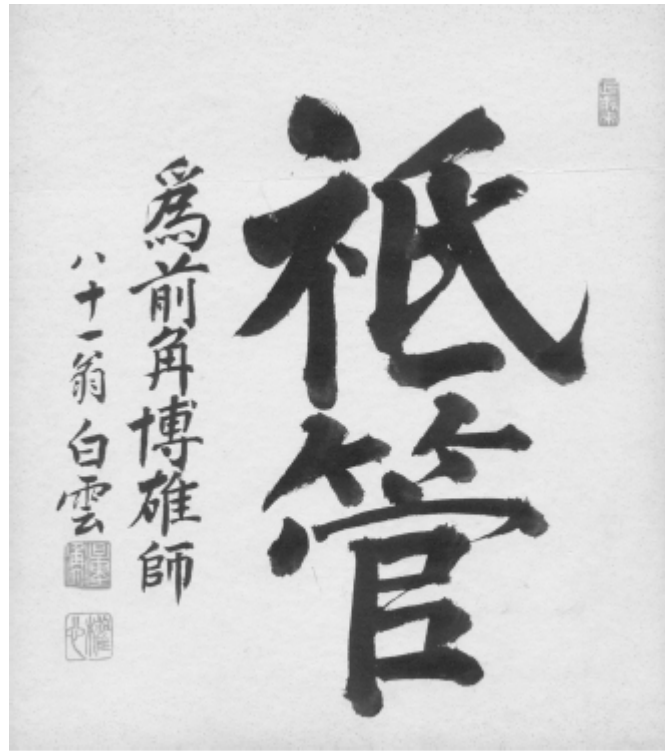 祗管
爲前角博雄師
八十一翁白雲